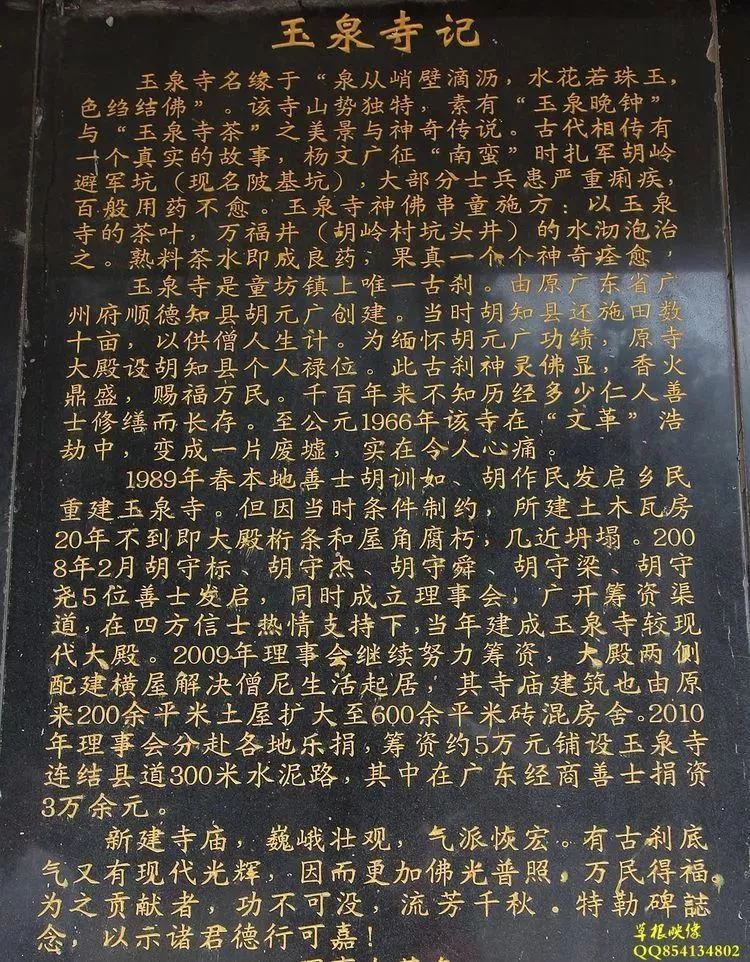 玉泉寺记
玉泉寺名缘于“泉从峭壁滴沥，水花若珠玉，
色绉结佛”。该寺山势独特，素有“玉泉晚钟”
与“玉泉寺茶”之美景与神奇传说。古代相传有
一个真实的故事，杨文广征“南蛮”时扎军胡岭
避军坑（现名陂基坑），大部分士兵患严重痢疾，
百般用药不愈。玉泉寺神佛串童施方：以玉泉
寺的茶叶，万福井（胡岭村坑头井）的水沏泡治
之。熟料茶水即成良药，果真一个个神奇痊愈，
玉泉寺是童坊镇上唯一古刹。由原广东省广
州府顺德知县胡元广创建。当时胡知县还施田数
十亩，以供僧人生计。为缅怀胡元广功绩，原寺
大殿设胡知县个人禄位。此古刹神灵佛显，香火
鼎盛，赐福万民。千百年来不知历经多少仁人善
士修缮而长存。至公元1966年该寺在“文革”浩
劫中，变成一片废墟，实在令人心痛。
1989年春本地善士胡训如、胡作民发启乡民
重建玉泉寺。但因当时条件制约，所建土木瓦房
20年不到即大殿桁条和屋角腐朽，几近坍塌。200
8年2月胡守标、胡守杰、胡守舜、胡守梁、胡守
尧5位善士发启，同时成立理事会，广开筹资渠
道，在四方信士热情支持下，当年建成玉泉寺较现
代大殿。2009年理事会继续努力筹资，大殿两侧
配建横屋解决僧尼生活起居，其寺庙建筑也由原
来200余平米土屋扩大至600余平米砖混房舍。2010
年理事会分赴各地乐捐，筹资约5万元铺设玉泉寺
连结县道300米水泥路，其中在广东经商善士捐资
3万余元。
新建寺庙，巍峨壮观，气派恢宏。有古刹底
气又有现代光辉，因而更加佛光普照，万民得福。
为之贡献者，功不可没，流芳千秋．特勒碑誌
念，以示诸君德行可嘉！
草根映像
QQ854134802